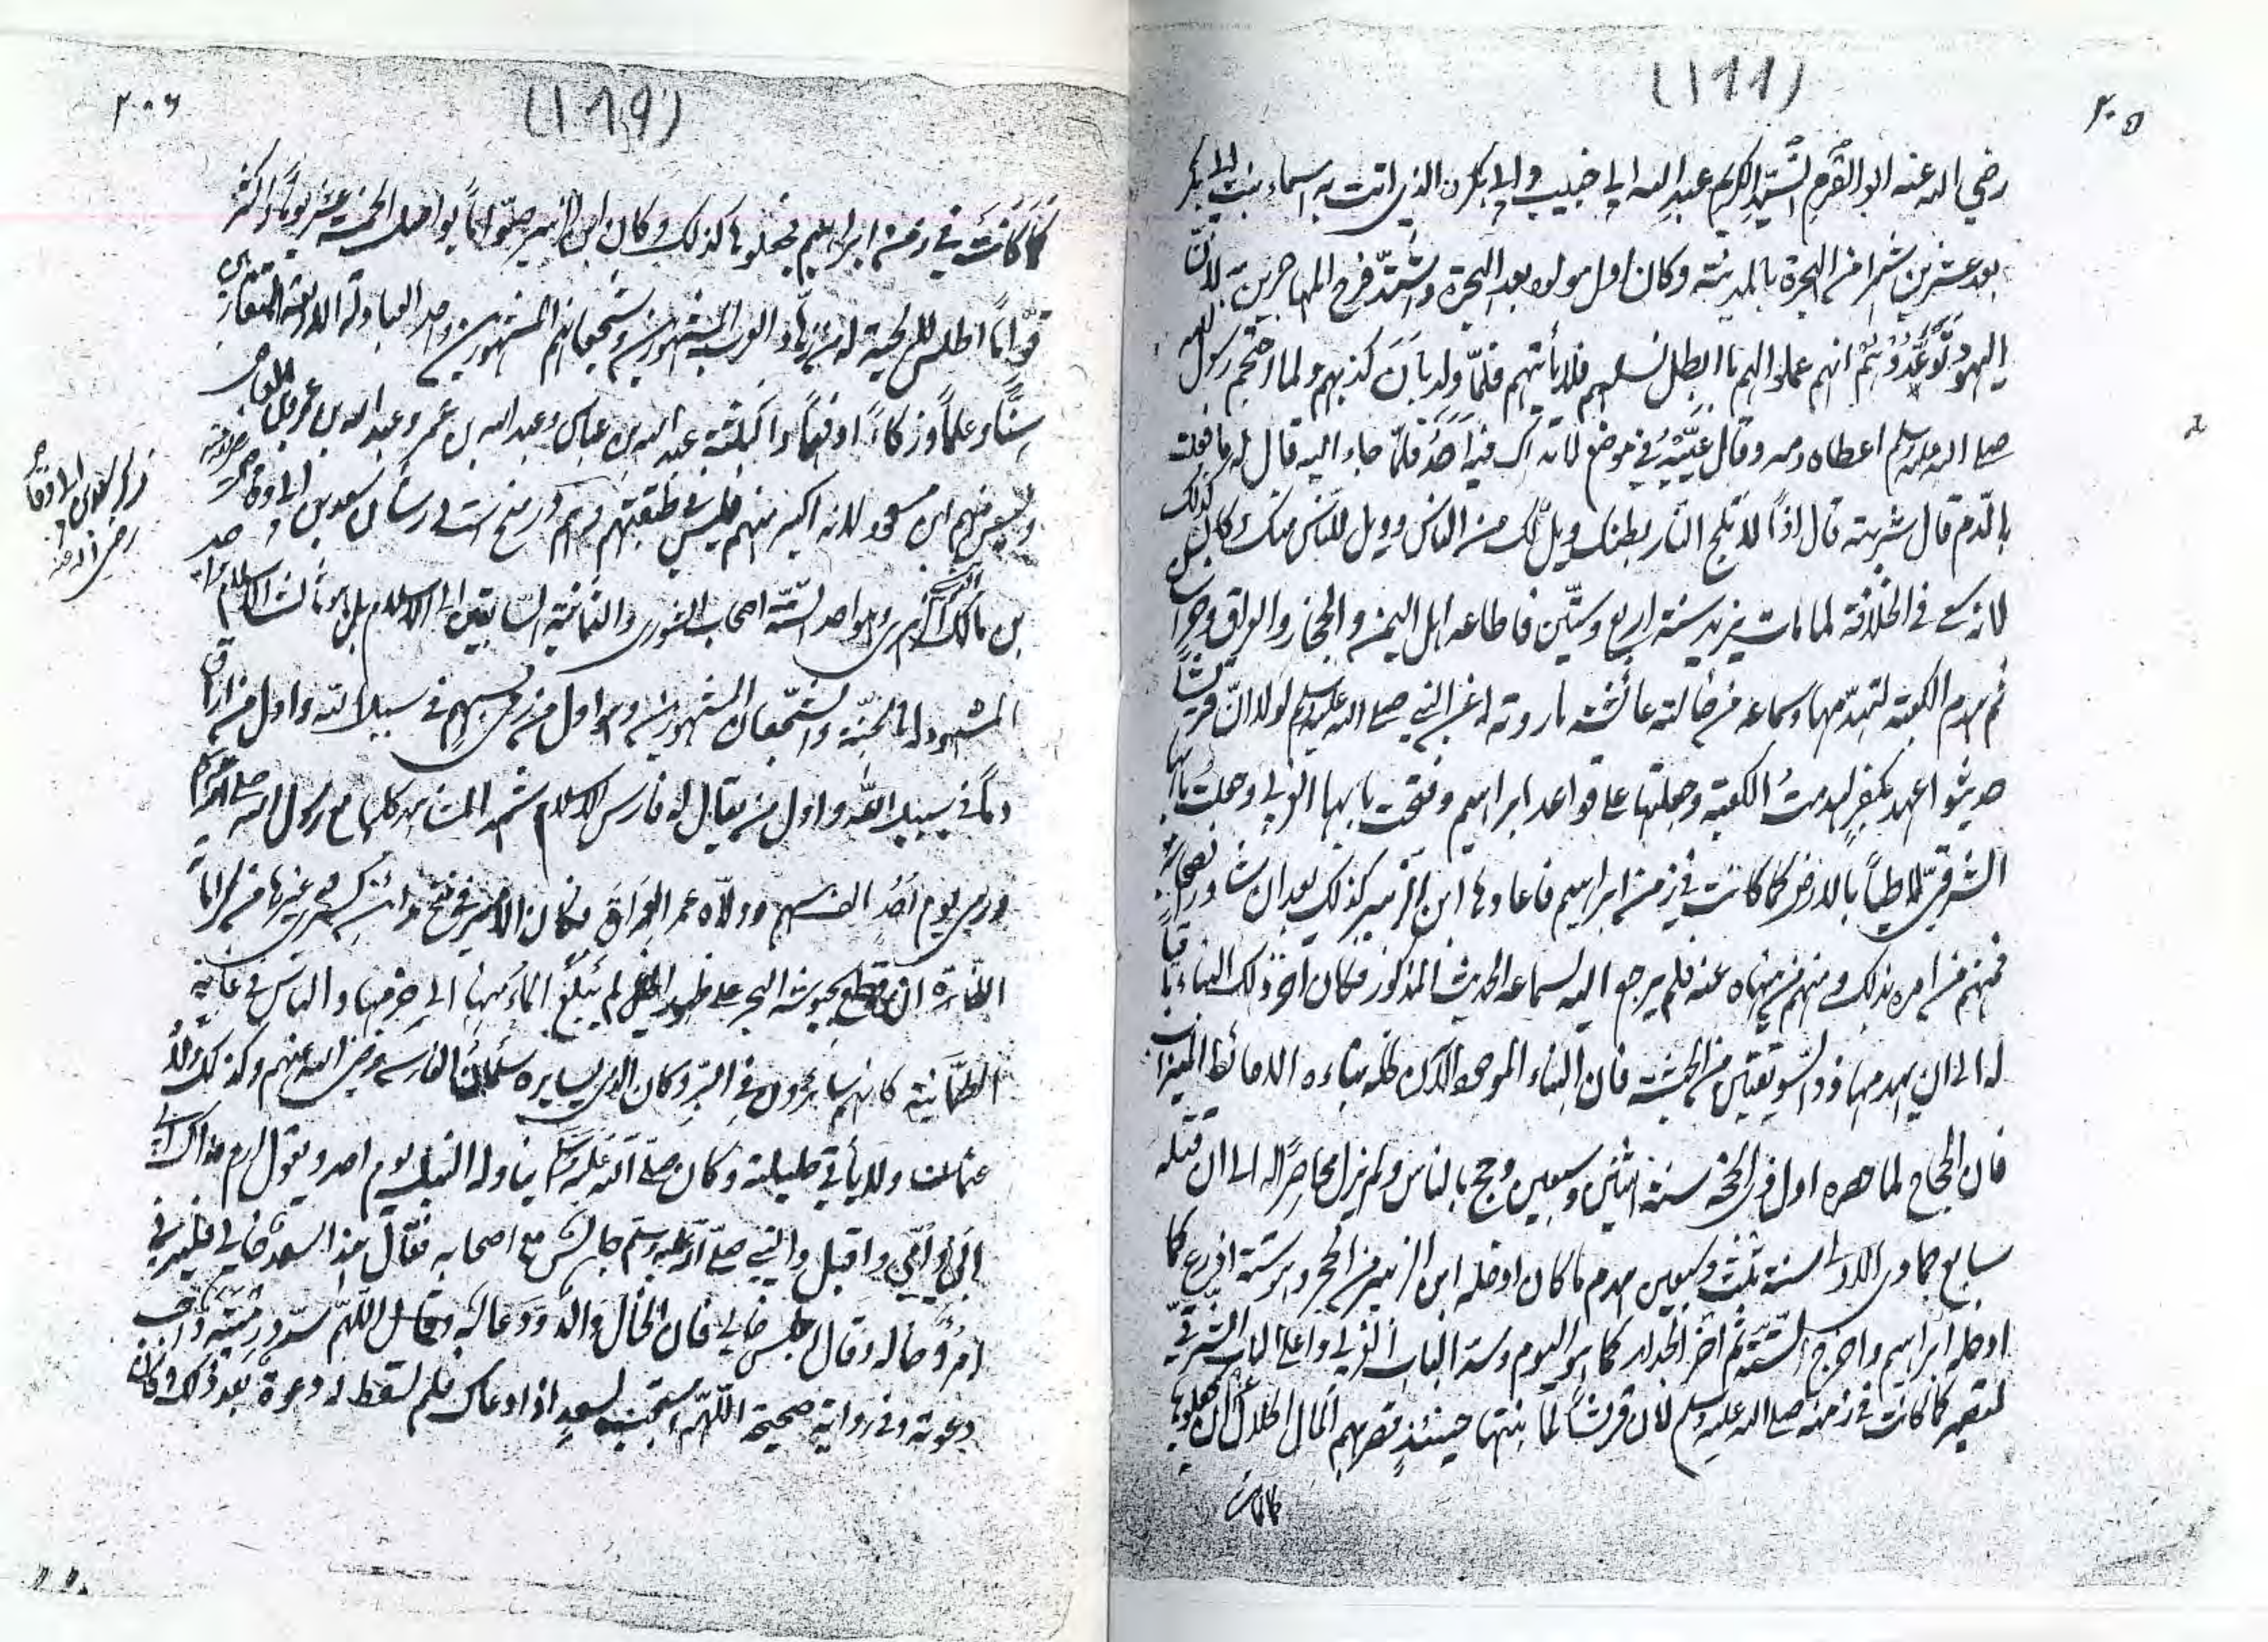 (١٨٨)
٢٠٥
رضي الله عنه ابو القرم السيد الكريم عبد الله ابي خبيب وابي بكرن الذي اتت به اسماء بنت ابي بكر
بعد عشرين شهرا من الهجرة بالمدينة وكان اول مولود بعد الهجرة واشتد فرح المهاجرين به لان
اليهود توعدوهم انهم عملوا لهم ما ابطل نسلهم فلا يأتيهم فلمّا ولد بان كذبهم ولما احتجم رسول الله
صلى الله عليه وسلم اعطاه دمه وقال غيّبه في موضع لا يراك فيه احد فلمّا جاء اليه قال له ما فعلت
بالدم قال شربته قال اذاً لا تلج النار بطنك ويل لك من الناس وويل للناس منك وكان كذلك
لانه سعى في الخلافة لما مات يزيد سنة اربع وستين فاطاعه اهل اليمن والحجاز والعراق وخراسان
ثم هدم الكعبة لتهدمها وسماعه من خالته عائشة ما روته عن النبي صلى الله عليه وسلم لولا انّ قريشاً
حديثوا عهد بكفر لهدمتُ الكعبة وجعلتها على قواعد ابراهيم وفتحت بابها الغربي وجعلت بابها
الشرقي لاطياً بالارض كما كانت في زمن ابراهيم فاعادها ابن الزبير كذلك بعد ان شاور الصحابة
فمنهم من امره بذلك ومنهم من نهاه عنه فلم يرجع اليه لسماعه الحديث المذكور فكان اخر ذلك البناء باقياً
له الى ان يهدمها ذو السويقتين من الحبشة فان البناء الموجود الآن كله بناءه الا حائط الميزاب
فان الحجاج لما حصره اول ذي الحجة سنة اثنين وسبعين وحج بالناس ولم يزل محاصرًا له الى ان قتله
سابع جمادى الاولى سنة ثلث وسبعين هدم ما كان ادخله ابن الزبير من الحجر وهو ستة اذرع كما
ادخله ابراهيم واخرج الستة ثم اخر الجدار كما هو اليوم وسد الباب الغربي واعلى الباب الشرقي
لتصير كما كانت في زمنه صلى الله عليه وسلم لان قريشاً لما بنتها حينئذٍ قصر بهم المال الحلال عن ان يجعلوها
كما كانت
(١٨٩)
٢٠٦
كما كانت في زمن ابراهيم فجعلوها كذلك وكان ابن الزبير صوّاماً يواصل الخمسة عشر يوماً واكثر
قوّاماً اطلس لا لحية له من زهاد العرب المشهورين وشجعانهم المشهورين واحد العبادلة الاربعة المتقاربين
سنّاً وعلماً وزكاءً وفهماً والبقية عبد الله بن عباس وعبد الله بن عمر وعبد الله بن عمرو بن العاص
وليس منهم ابن مسعود لانه اكبر منهم فليس في طبقتهم سعد بن ابي وقاص
ذكر سعد بن ابي وقاص
رضي الله عنه
بن مالك الزهري وهو احد الستة اصحاب الشورى والثمانية السابقين الى الاسلام بل هو ثالث الاسلام
المشهود له بالجنة والشجعان المشهورين وهو اول من رمى بسهم في سبيل الله واول من اراق
دماً في سبيل الله واول من يقال له فارس الاسلام شهد المشاهد كلها مع رسول الله صلى الله عليه وسلم
ورمى يوم احد الف سهم وولاه عمر العراق فكان الامير في فتح مدائن كسرى وغيرها من كراماته
الظاهرة ان قطع بجيوشه البحر على ظهور الخيل لم يبلغ الماء منها الى حزمها والناس في غاية
الطمأنينة كانهم سايرون في البر وكان الذي يسايره سلمان الفارسي رضي الله عنهم وكذلك ولّاه
عثمان وكان صلى الله عليه وسلم يناوله النبل يوم احد ويقول ارم فداك
ابي وامي واقبل والنبي صلى الله عليه وسلم جالس مع اصحابه فقال هذا سعد خالي فليرني
امرؤ خاله وقال اجلس خالي فان الخال والد ودعا له وقال اللهم سدد رميته واجب
دعوته وفي رواية صحيحة اللهم استجب لسعد اذا دعاك فلم تسقط له دعوة بعد ذلك وكان